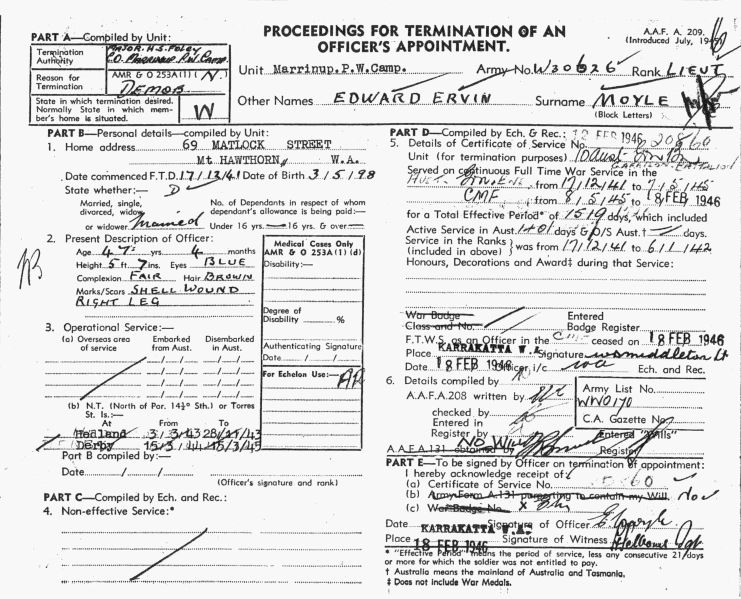 PROCEEDINGS FOR TERMINATION OF AN
OFFICER'S APPOINTMENT.
A.A.F. A. 209.
(Introduced July, 1945)
PART A—Compiled by Unit:
Termination Authority MAJOR. H.S. FOLEY
C.O. MARRINUP. P.W. CAMP.
Reason for Termination AMR & O 253A(1) ( ) N.
DEMOB
State in which termination desired. Normally State in which member's home is situated. W
Unit Marrinup.P.W.Camp. Army No. W30626 Rank LIEUT
Other Names EDWARD ERVIN Surname MOYLE
(Block Letters)
PART B—Personal details—compiled by Unit:
1. Home address 69 MATLOCK STREET
MT HAWTHORN, W.A.
Date commenced F.T.D. 17/12/41 Date of Birth 3/5/98
State whether:— D
Married, single, divorced, widow or widower Married
No. of Dependants in respect of whom dependant's allowance is being paid:—
Under 16 yrs. 16 yrs. & over
2. Present Description of Officer:
Age 47 yrs 4 months
Height 5 ft 7 ins. Eyes BLUE
Complexion FAIR Hair BROWN
Marks/Scars SHELL WOUND
RIGHT LEG
Medical Cases Only
AMR & O 253A(1) (d)
Disability:—
Degree of
Disability %
Authenticating Signature
Date / /
For Echelon Use:—
3. Operational Service:—
(a) Overseas area of service
Embarked from Aust.
Disembarked in Aust.
(b) N.T. (North of Par. 14½° Sth.) or Torres
St. Is.:—
At From To
Hedland 3/3/43
Derby
Part B compiled by:—
Date / /
(Officer's signature and rank)
PART C—Compiled by Ech. and Rec.:
4. Non-effective Service:*
PART D—Compiled by Ech. & Rec.: 12 FEB 1946
5. Details of Certificate of Service No. 620860
Unit (for termination purposes)
GARRISON BATTALION
Served on continuous Full Time War Service in the
from 17/12/41 to 7/5/45
CMF from 8/5/45 to 18 FEB 1946
for a Total Effective Period* of 1519 days, which included
Active Service in Aust.† 1401 days & O/S Aust.† days.
Service in the Ranks (included above) } was from 17/12/41 to 6/1/42
Honours, Decorations and Award‡ during that Service:
War Badge
Class and No.
Entered
Badge Register
F.T.W.S. as an Officer in the CMF ceased on 18 FEB 1946
Place KARRAKATTA W.A. Signature W Middleton Lt
Date 18 FEB 1946 Officer i/c WA Ech. and Rec.
6. Details compiled by
A.A.F.A.208 written by
checked by
Entered in
Register by
A.A.F.A.131 obtained by NO WILL
Army List No.
WW0170
C.A. Gazette No.
Entered "Wills"
Register
PART E—To be signed by Officer on termination of appointment:
I hereby acknowledge receipt of:
(a) Certificate of Service No.
(b) Army Form A.131 purporting to contain my Will.
(c) War Badge No.
Date KARRAKATTA W.A. Signature of Officer E Moyle
Place 18 FEB 1946 Signature of Witness
* "Effective Period" means the period of service, less any consecutive 21 days
or more for which the soldier was not entitled to pay.
† Australia means the mainland of Australia and Tasmania.
‡ Does not include War Medals.